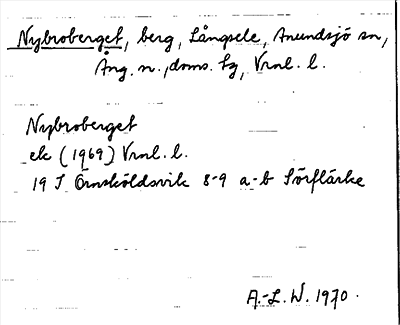 Nybroberget, berg, Långsele, Anundsjö sn,
Ång. n., doms. tg, Vrnl. l.
Nybroberget
ek (1969) Vrnl. l.
19 J Örnsköldsvik 8-9 a-b Sörflärke
A.-L. W. 1970.